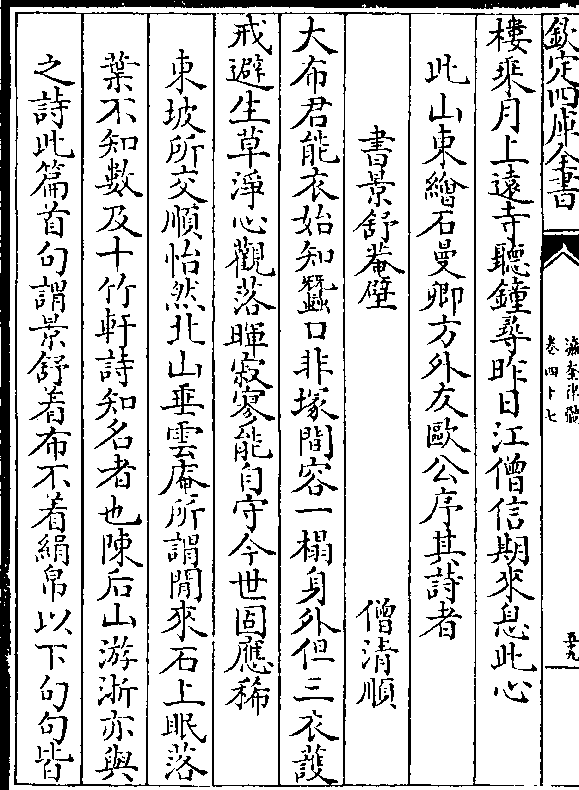 欽定四庫全書
瀛奎律髓
卷四十七
樓乘月上遠寺聽鐘尋昨日江僧信期來息此心
此山東繒石曼卿方外友歐公序其詩者
書景舒菴壁
僧清順
大布君能衣始知蠶口非塚間容一榻身外但三衣護
戒避生草淨心觀落暉寂寥能自守今世固應稀
東坡所交順怡然北山垂雲庵所謂閒來石上眠落
葉不知數及十竹軒詩知名者也陳后山游浙亦與
之詩此篇首句謂景舒着布不着絹帛以下句句皆